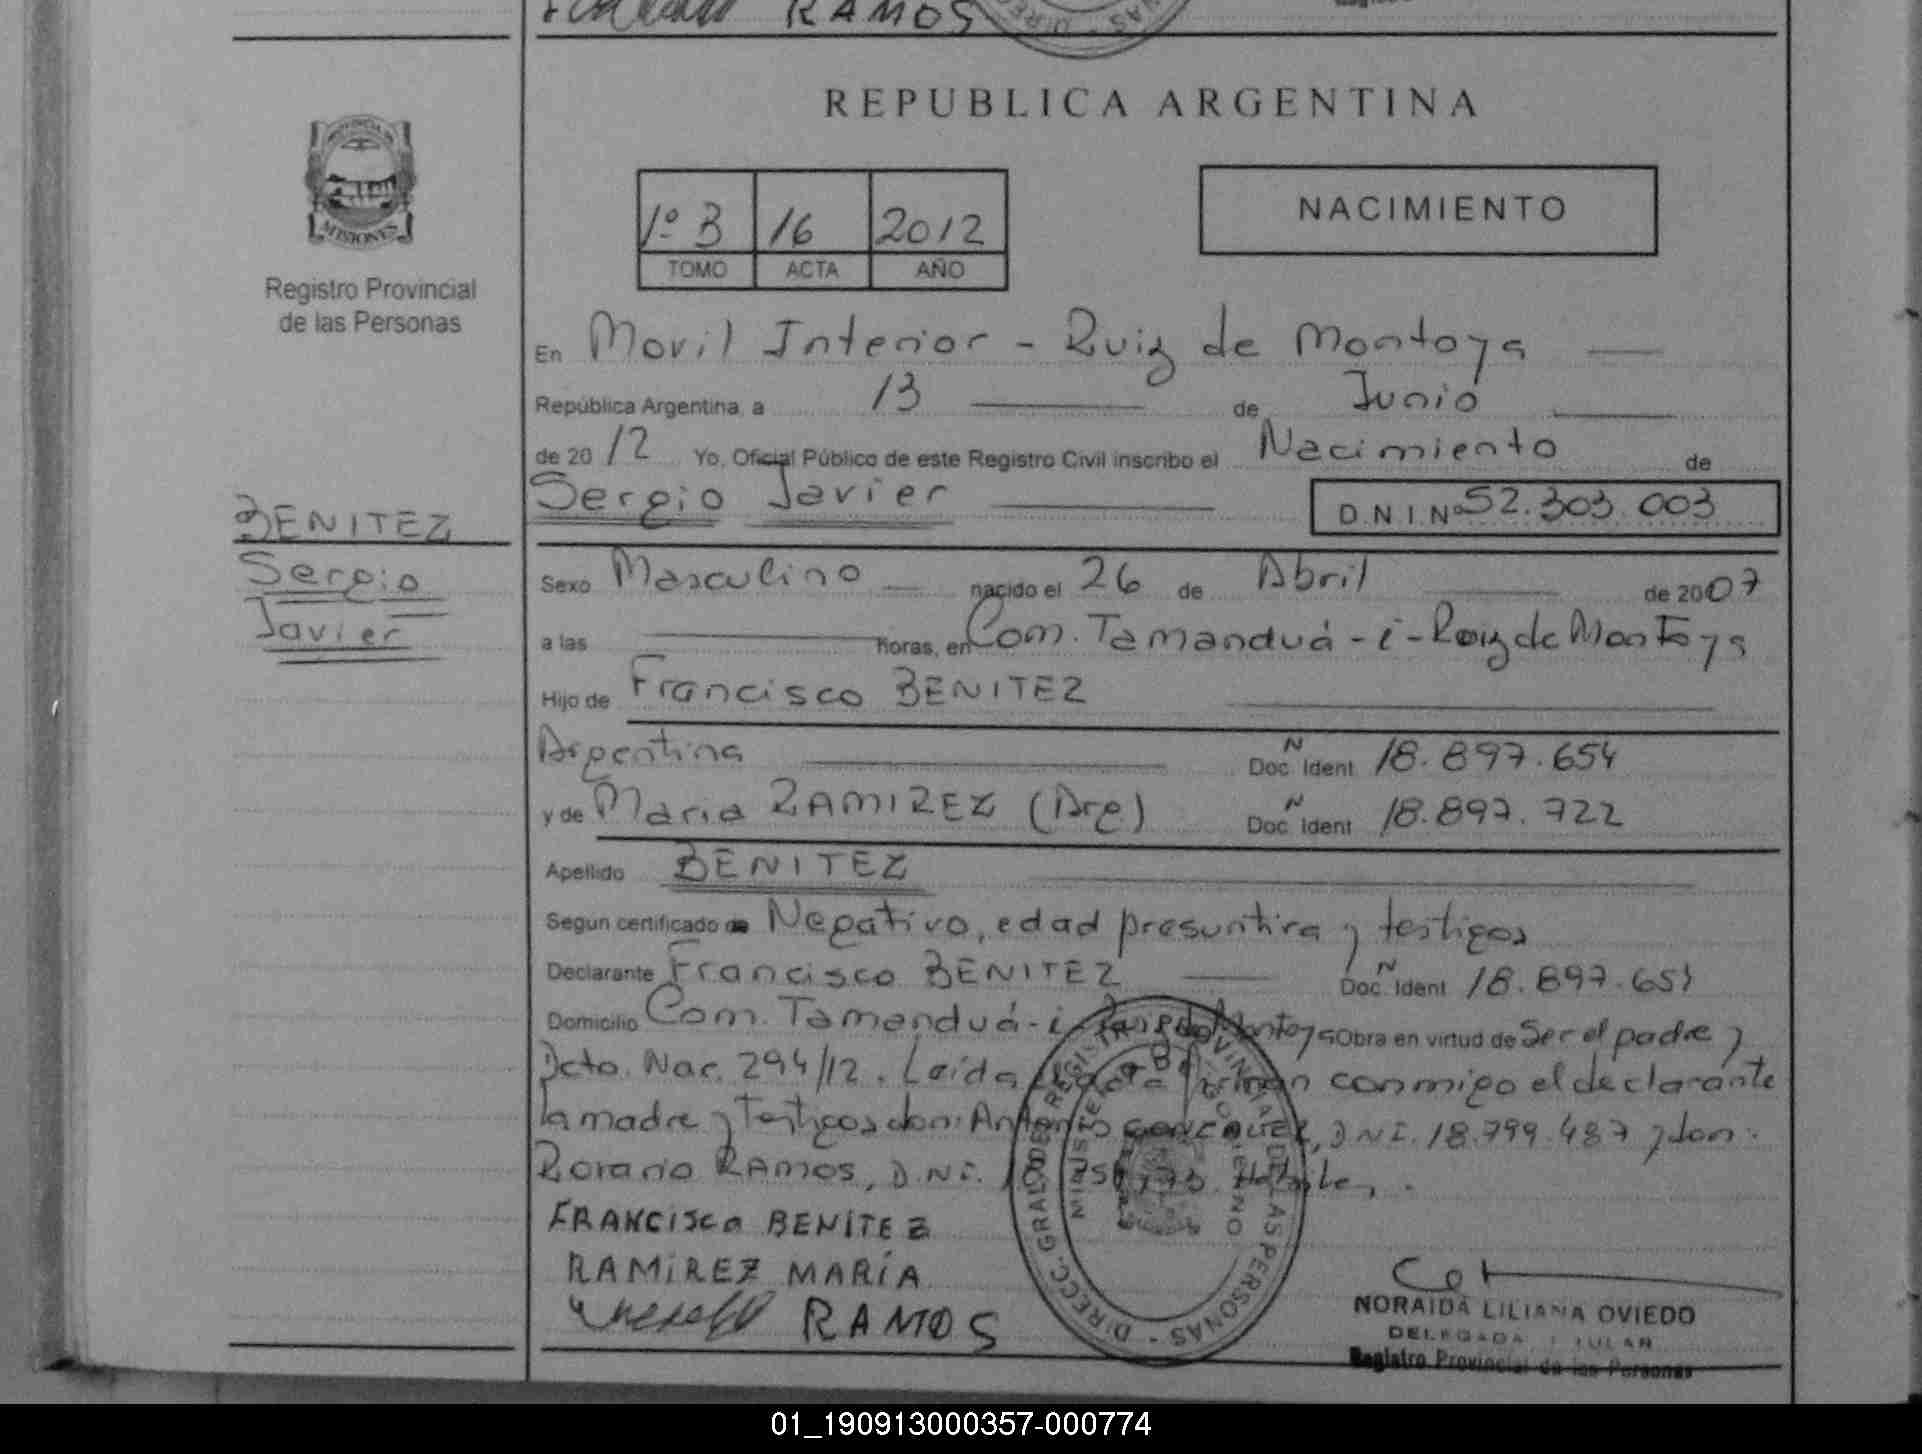 RAMOS
REPUBLICA ARGENTINA
PROVINCIA DE
MISIONES
Registro Provincial
de las Personas
1º B 16 2012
TOMO ACTA AÑO
NACIMIENTO
En Movil Interior - Ruiz de Montoya
República Argentina, a 13 de Junio
de 2012 Yo, Oficial Público de este Registro Civil inscribo el Nacimiento de
Sergio Javier D.N.I. Nº 52.303.003
BENITEZ
Sergio
Javier
Sexo Masculino nacido el 26 de Abril de 2007
a las horas, en Com. Tamanduá-i-Ruiz de Montoya
Hijo de Francisco BENITEZ
Argentina Doc. Ident. N 18.897.654
y de Maria RAMIREZ (Arg) Doc. Ident. N 18.897.722
Apellido BENITEZ
Según certificado de Negativo, edad presuntiva y testigos
Declarante Francisco BENITEZ Doc. Ident. N 18.897.654
Domicilio Com. Tamanduá-i-Ruiz de Montoya Obra en virtud de Ser el padre y
Dcto. Nac. 294/12. Leída el acta firman conmigo el declarante
la madre y Testigos don: Antonio D.N.I. 18.799.487 y don:
Rosario RAMOS, D.N.I.
FRANCISCO BENITEZ
RAMIREZ MARÍA
RAMOS
DIRECC. GRAL. DEL REGISTRO PROVINCIAL DE LAS PERSONAS
MINISTERIO DE GOBIERNO
NORAIDA LILIANA OVIEDO
DELEGADA TITULAR
Registro Provincial de las Personas
01_190913000357-000774